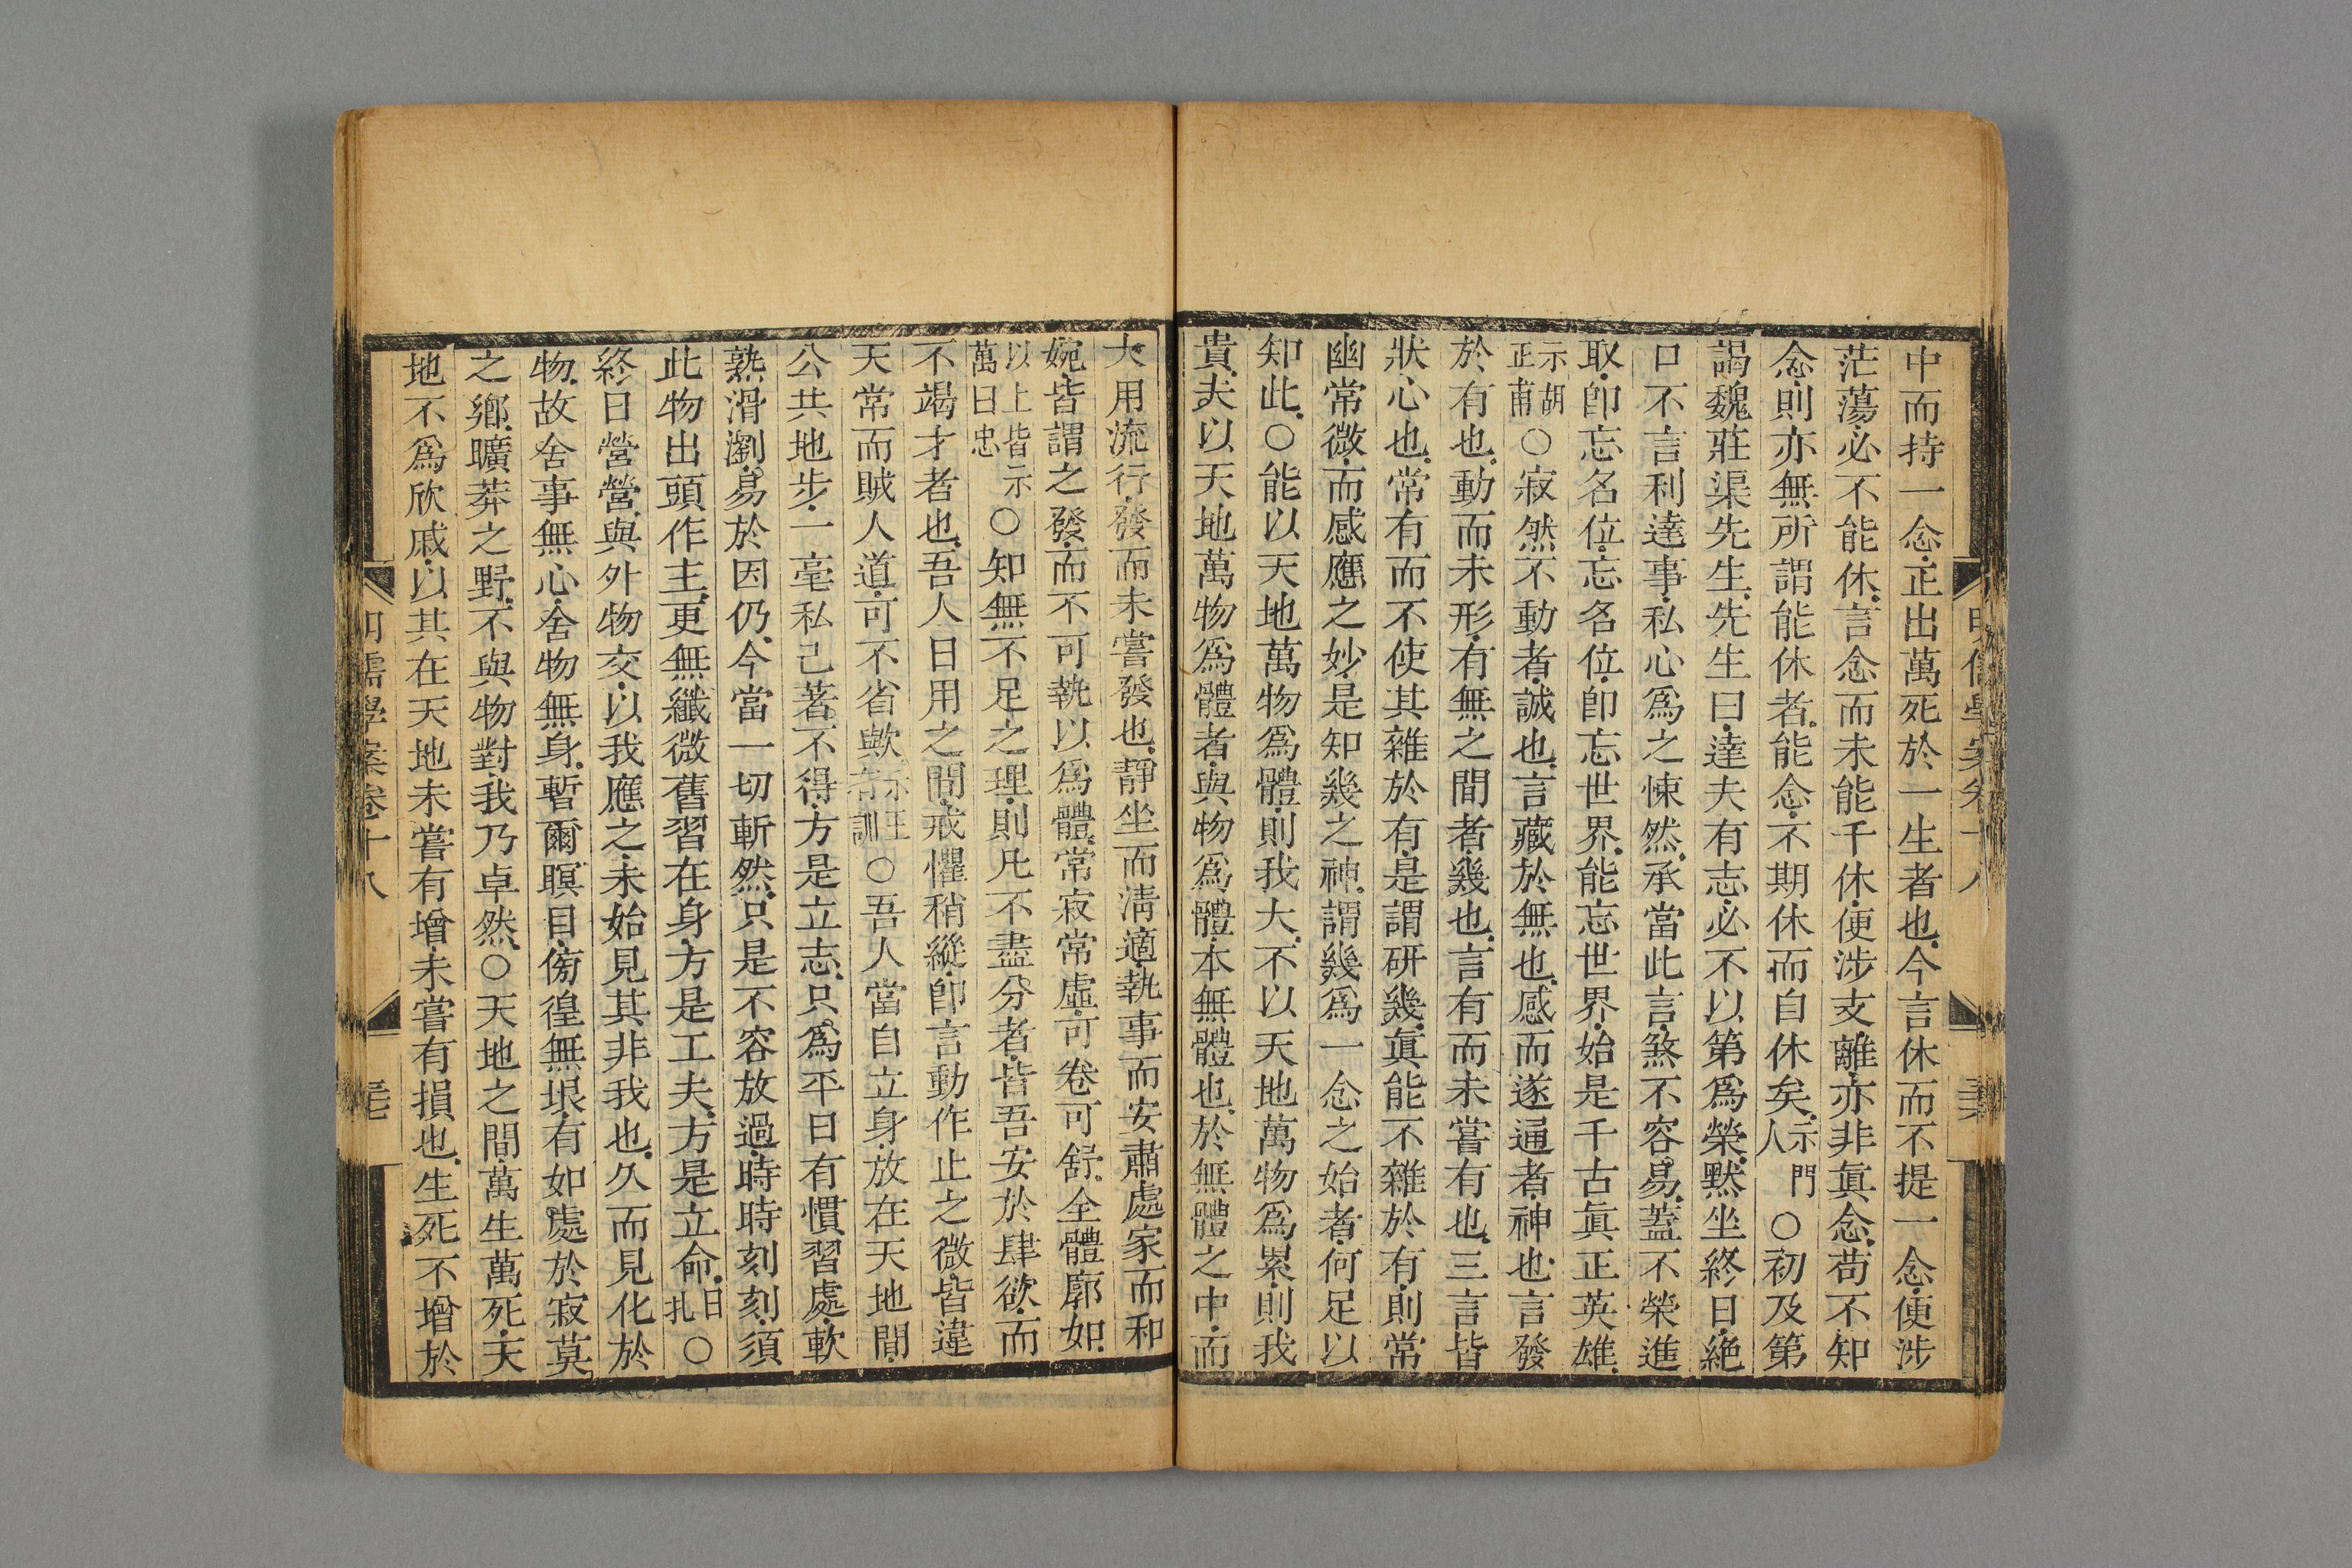 中而持一念正出萬死於一生者也今言休而不提一念便涉
茫蕩必不能休言念而未能千休便涉支離亦非眞念苟不知
念則亦無所謂能休者能念不期休而自休矣示門人○初及第
謁魏莊渠先生先生曰達夫有志必不以第爲榮默坐終日絶
口不言利達事私心爲之悚然承當此言煞不容易蓋不榮進
取卽忘名位忘名位卽忘世界能忘世界始是千古眞正英雄
示胡正甫○寂然不動者誠也言藏於無也感而遂通者神也言發
於有也動而未形有無之間者幾也言有而未嘗有也三言皆
狀心也常有而不使其雜於有是謂研幾眞能不雜於有則常
幽常微而感應之妙是知幾之神謂幾爲一念之始者何足以
知此○能以天地萬物爲體則我大不以天地萬物爲累則我
貴夫以天地萬物爲體者與物爲體本無體也於無體之中而
大用流行發而未嘗發也靜坐而淸適執事而安肅處家而和
婉皆謂之發而不可執以爲體常寂常虛可卷可舒全體廓如
以上皆示萬曰忠○知無不足之理則凡不盡分者皆吾安於肆欲而
不竭才者也吾人日用之間戒懼稍縱卽言動作止之微皆違
天常而賊人道可不省歟示王有訓○吾人當自立身放在天地間
公共地步一毫私己著不得方是立志只爲平日有慣習處軟
熟滑瀏易於因仍今當一切斬然只是不容放過時時刻刻須
此物出頭作主更無纖微舊習在身方是工夫方是立命日札○
終日營營與外物交以我應之未始見其非我也久而見化於
物故舍事無心舍物無身暫爾瞑目傍徨無垠有如處於寂莫
之鄉曠莽之野不與物對我乃卓然○天地之間萬生萬死天
地不爲欣戚以其在天地未嘗有增未嘗有損也生死不增於
儒學案卷十八